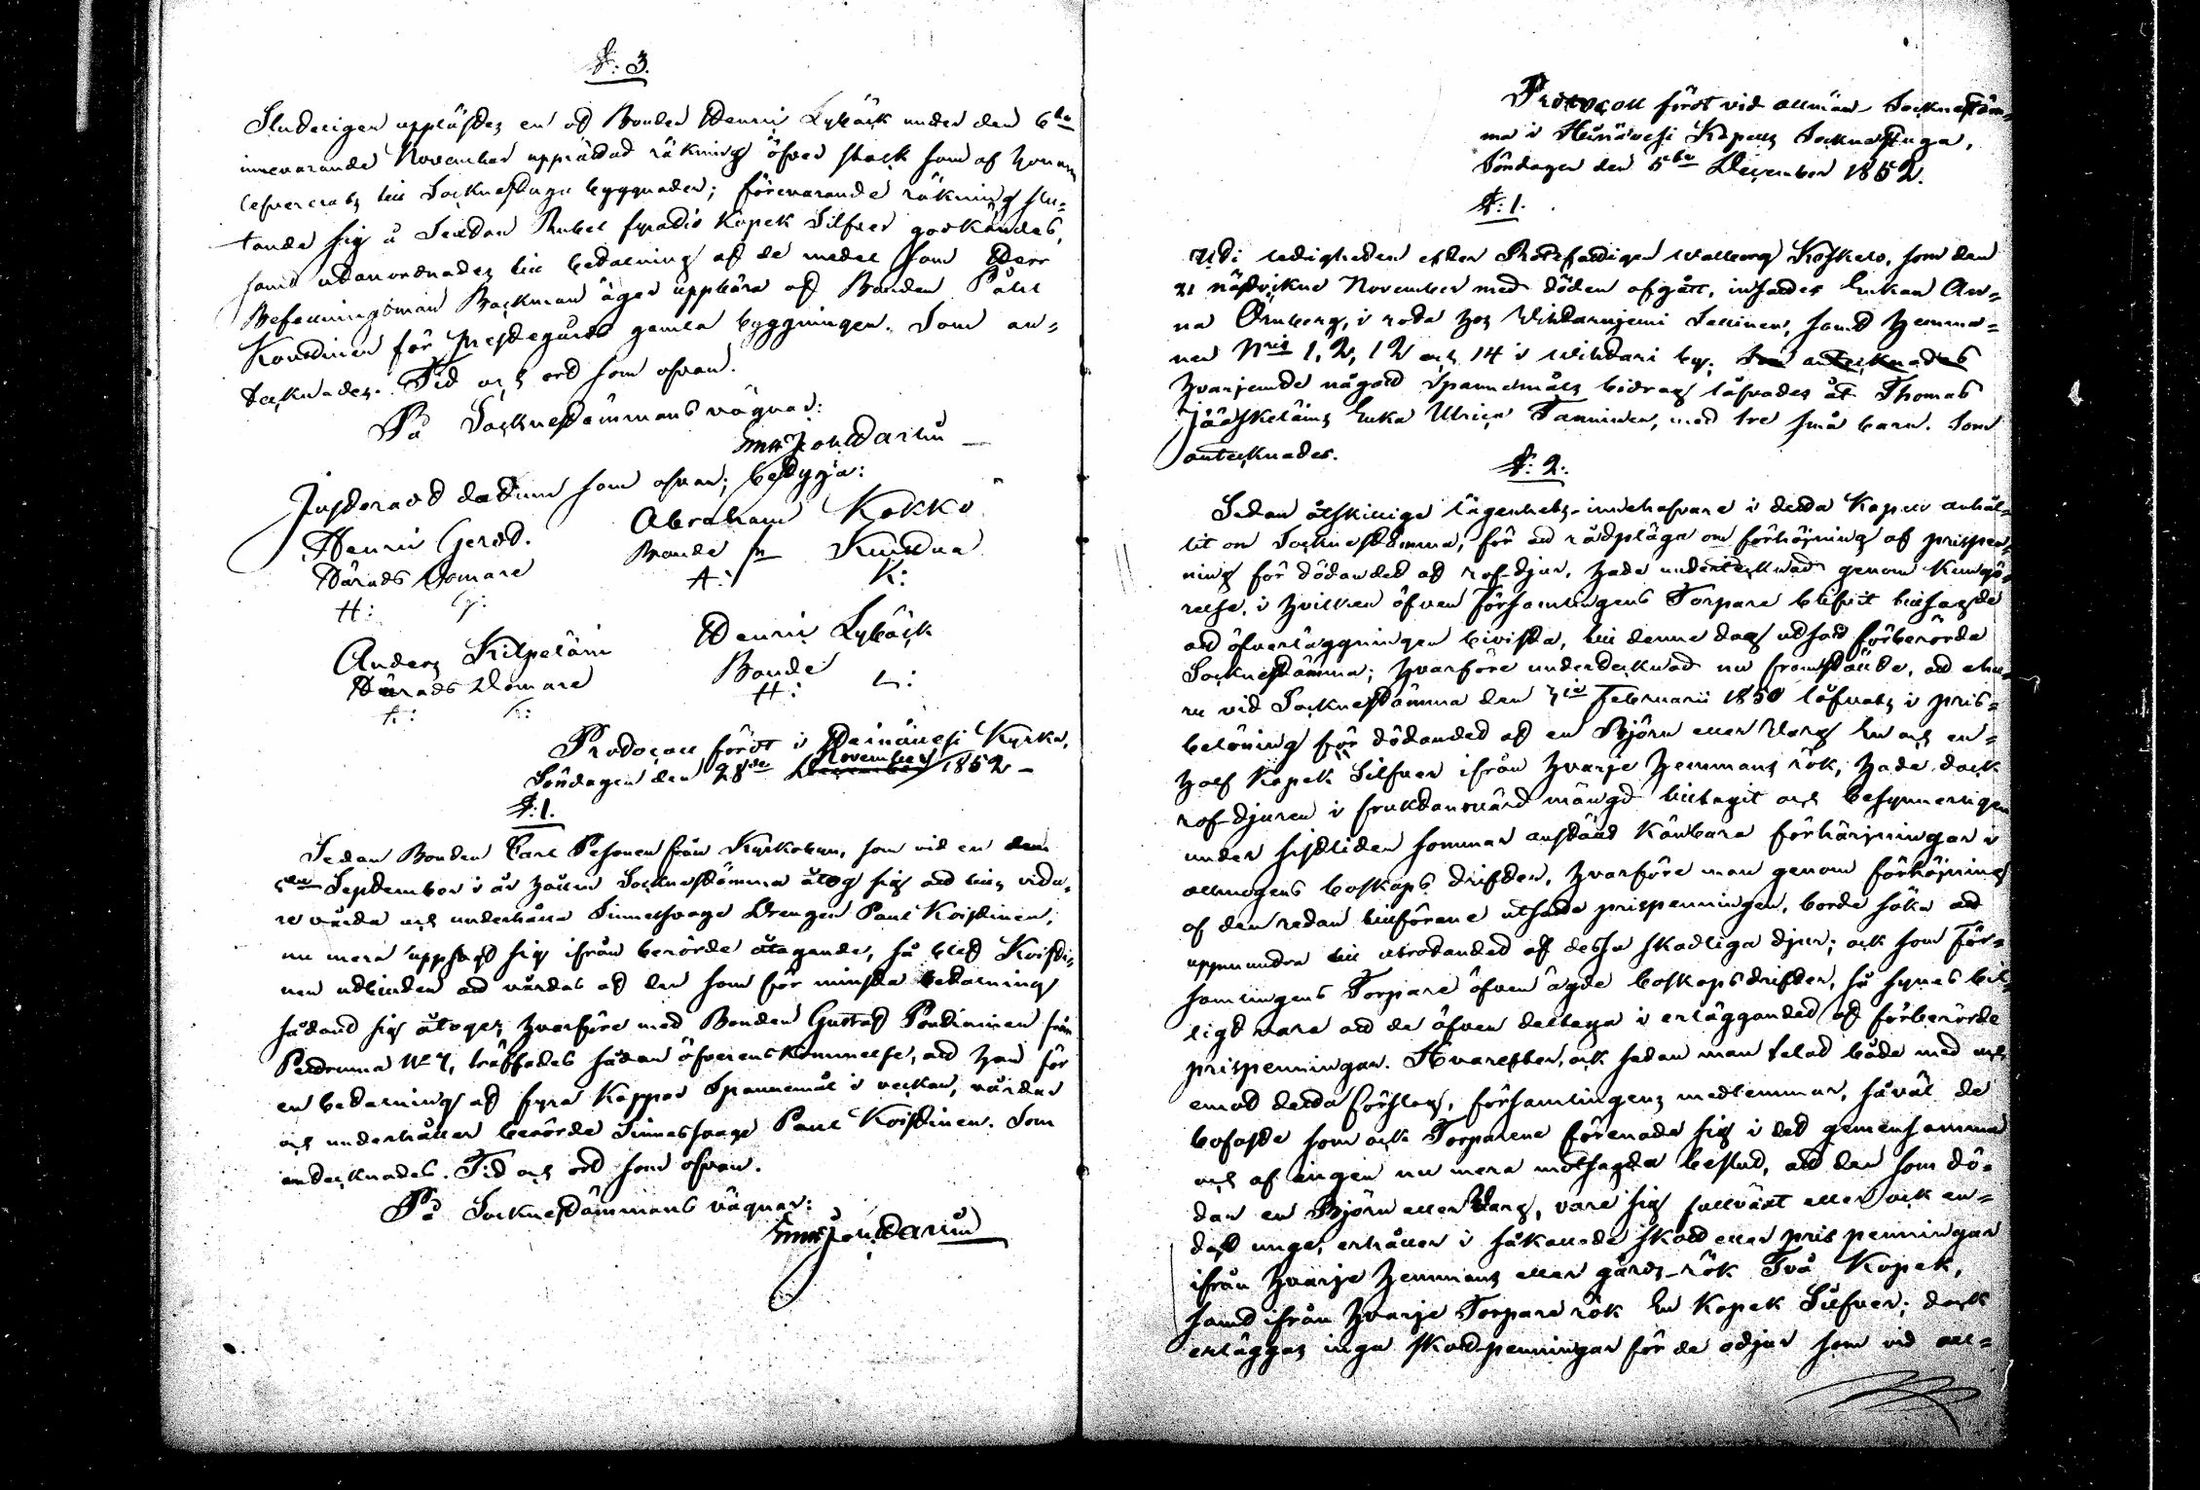 §: 3.
Sluteligen upplästes en af Bonden Henric Lybäck under den 6te
innevarande November upprättad räkning öfver stock som af honom
lefvererats till Sockenstugu byggnaden; förevarande räkning slu-
tande sig å Sextton Rubel fyratio Kopek Silfver godkändes,
samt utanordnades till betalning af de medel som Herr
Befallningsman Backman äger uppbära af Bonden Påhl
Konttinen för Prestegårds gamla byggningen. Som an-
tecknades. Tid och ort som ofvan.
På Sockenstämmans vägnar:
Justeradt datum som ofvan; betyga:
Henric Gerdt.
Härads Domare
H: G:
Abraham Kokko
Bonde fr Kunttua
A: K:
Anders Kilpeläin
Härads Domare
A: K:
Henric Lybäck
Bonde
H: L:
Protocoll fördt i Heinävesi Kyrka,
Söndagen den 28de November 1852 –
§: 1.
Sedan Bonden Carl Pesonen från Kyrkobyn, som vid en den
September i år hållen Sockenstämma åtog sig att till vida-
re vårda och underhålla Sinnessvage Drengen Paul Koistinen,
nu mera uppsagt sig ifrån berörde åtagande, så blef Koisti-
nen utbuden att vårdas af den som för minsta betalning
sådant sig åtoge; hvarföre med Bonden Gustaf Pontinen från
Petruma No 7, träffades sådan öfverenskommelse, att han för
en betalning af fyra Kappar Spannemål i veckan, vårdar
och underhåller berörde Sinnessvage Paul Koistinen. Som
antecknades. Tid och ort som ofvan.
På Sockenstämmans vägnar:
Protocoll fördt vid allmän Sockenstäm-
ma i Heinävesi Kapells Sockenstuga,
Söndagen den 5te December 1852.
§: 1.
Uti ledigheten efter Rotefattigen Walborg Koskelo, som den
21 nästvikne November med döden afgått, insattes Enkan An-
na Örnberg, i rota hos Wihtarinjemi Sallinen, samt hemma-
nen Nris 1, 2, 12 och 14 i Wihtari by. Som antecknades
Hvarjemte något Spannemåls bidrag låfvades åt Thomas
Jääskeläins Enka Ulrica Tanninen, med tre små barn. Som
antecknades.
§: 2.
Sedan åtskillige lägenhets-innehafvare i detta Kapell anhål-
lit om Sockenstämma, för att rådpläga om förhöjning af prispen-
ning för dödandet af rof-djur, hade undertecknad genom kungö-
relse, i hvilken öfven Församlingens Torpare blifvit tillsagde
att öfverläggningen bivista, till denne dag utsatt förberörde
Sockenstämma; hvarföre undertecknad nu framställde, att ehu-
ru vid Sockenstämma den 3ie Februarii 1850 låfvats i pris-
belöning för dödandet af en Björn eller Varg En och en-
half Kopek Silfver ifrån hvarje hemmans rök, hade dock
rof-djuren i fruktansvärd mängd tilltagit och besynnerligen
under sistliden sommar anställt känbara förhärjningar i
allmogens boskaps drifter, hvarföre man genom förhöjning
af den redan tillförene utsatte prispenningen, borde söka att
uppmuntra till utrotandet af dessa skadliga djur; och som För-
samlingens Torpare öfven ägde boskapsdrifter, så synes bil-
ligt vara att de öfven deltaga i erläggandet af förberörde
prispenningar. Hvarefter, och sedan man talat både med och
emot detta förslag, församlingens medlemmar, såväl de
bofaste som ock Torparene förenade sig i det gemensamma
och af ingen nu mera motsagda beslut, att den som dö-
dar en Björn eller Varg, vare sig fullväxt eller ock en-
dast unge, erhåller i såkallade skott eller pris penningar
ifrån hvarje hemmans eller gårds-rök Två Kopek,
samt ifrån hvarje Torpare rök En Kopek Silfver; dock
erläggas inga skottpenningar för de odjur som vid all-